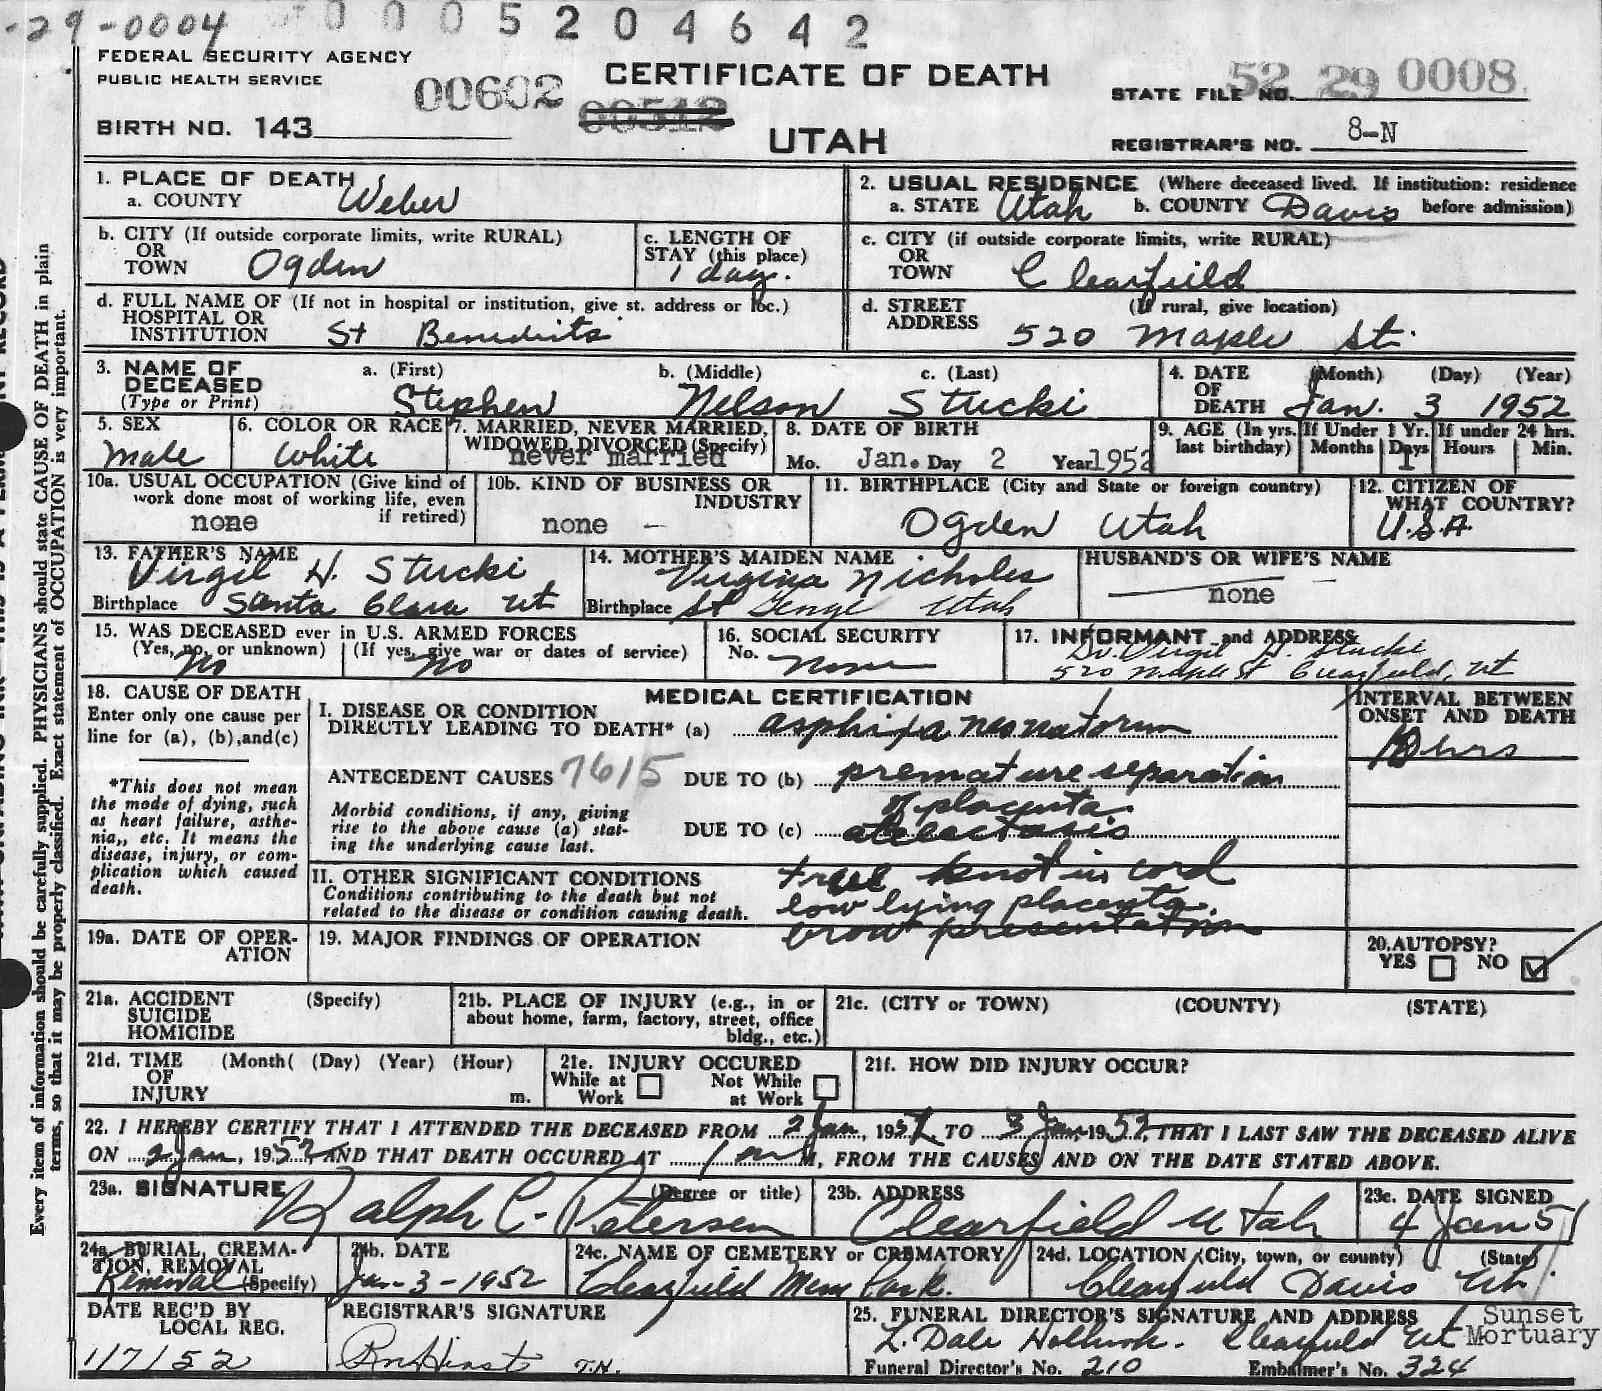 -29-0004 0005204642
FEDERAL SECURITY AGENCY
PUBLIC HEALTH SERVICE
00602 00512
CERTIFICATE OF DEATH
UTAH
BIRTH NO. 143
STATE FILE NO. 52 29 0008
REGISTRAR'S NO. 8-N
1. PLACE OF DEATH
a. COUNTY Weber
2. USUAL RESIDENCE (Where deceased lived. If institution: residence before admission)
a. STATE Utah b. COUNTY Davis
b. CITY (If outside corporate limits, write RURAL)
OR
TOWN Ogden
c. LENGTH OF
STAY (this place)
1 day.
c. CITY (if outside corporate limits, write RURAL)
OR
TOWN Clearfield
d. FULL NAME OF (If not in hospital or institution, give st. address or loc.)
HOSPITAL OR
INSTITUTION St Benedicts
d. STREET (If rural, give location)
ADDRESS 520 Maple St.
3. NAME OF
DECEASED
(Type or Print)
a. (First) b. (Middle) c. (Last)
Stephen Nelson Stucki
4. DATE OF DEATH (Month) (Day) (Year)
Jan. 3 1952
5. SEX
Male
6. COLOR OR RACE
White
7. MARRIED, NEVER MARRIED,
WIDOWED, DIVORCED (Specify)
never married
8. DATE OF BIRTH
Mo. Jan. Day 2 Year 1952
9. AGE (In yrs. last birthday)
If Under 1 Yr. Months Days 1
If under 24 hrs. Hours Min.
10a. USUAL OCCUPATION (Give kind of
work done most of working life, even
if retired)
none
10b. KIND OF BUSINESS OR
INDUSTRY
none -
11. BIRTHPLACE (City and State or foreign country)
Ogden Utah
12. CITIZEN OF
WHAT COUNTRY?
U.S.A.
13. FATHER'S NAME
Virgil H. Stucki
Birthplace Santa Clara Ut
14. MOTHER'S MAIDEN NAME
Virginia Nicholes
Birthplace St George Utah
HUSBAND'S OR WIFE'S NAME
none
15. WAS DECEASED ever in U.S. ARMED FORCES
(Yes, no, or unknown) (If yes, give war or dates of service)
No No
16. SOCIAL SECURITY
No. None
17. INFORMANT and ADDRESS
Dr. Virgil H. Stucki
520 Maple St Clearfield, Ut
18. CAUSE OF DEATH
Enter only one cause per
line for (a), (b), and (c)
*This does not mean
the mode of dying, such
as heart failure, asthe-
nia,, etc. It means the
disease, injury, or com-
plication which caused
death.
MEDICAL CERTIFICATION
I. DISEASE OR CONDITION
DIRECTLY LEADING TO DEATH* (a) asphixia neonatorum
ANTECEDENT CAUSES 7615 DUE TO (b) premature separation
of placenta
Morbid conditions, if any, giving
rise to the above cause (a) stat-
ing the underlying cause last.
DUE TO (c) atelectasis
INTERVAL BETWEEN
ONSET AND DEATH
hrs
II. OTHER SIGNIFICANT CONDITIONS
Conditions contributing to the death but not
related to the disease or condition causing death.
true knot in cord
low lying placenta
brow presentation
19a. DATE OF OPER-
ATION
19. MAJOR FINDINGS OF OPERATION
20. AUTOPSY?
YES NO ✓
21a. ACCIDENT (Specify)
SUICIDE
HOMICIDE
21b. PLACE OF INJURY (e.g., in or
about home, farm, factory, street, office
bldg., etc.)
21c. (CITY or TOWN) (COUNTY) (STATE)
21d. TIME (Month( (Day) (Year) (Hour)
OF
INJURY m.
21e. INJURY OCCURED
While at Work Not While at Work
21f. HOW DID INJURY OCCUR?
22. I HEREBY CERTIFY THAT I ATTENDED THE DECEASED FROM 2 Jan, 1952 TO 3 Jan 1952, THAT I LAST SAW THE DECEASED ALIVE
ON 2 Jan, 1952, AND THAT DEATH OCCURED AT 1 a M, FROM THE CAUSES AND ON THE DATE STATED ABOVE.
23a. SIGNATURE (Degree or title)
Ralph C. Petersen
23b. ADDRESS
Clearfield Utah
23c. DATE SIGNED
4 Jan 51
24a. BURIAL, CREMA-
TION, REMOVAL
Removal (Specify)
24b. DATE
Jan-3-1952
24c. NAME OF CEMETERY or CREMATORY
Clearfield Mem Park.
24d. LOCATION (City, town, or county) (State)
Clearfield Davis Ut
DATE REC'D BY
LOCAL REG.
1/7/52
REGISTRAR'S SIGNATURE
T.N.
25. FUNERAL DIRECTOR'S SIGNATURE AND ADDRESS
L. Dale Holbrook. Clearfield Ut
Sunset
Mortuary
Funeral Director's No. 210 Embalmer's No. 324
Every item of information should be carefully supplied. PHYSICIANS should state CAUSE OF DEATH in plain
terms, so that it may be properly classified. Exact statement of OCCUPATION is very important.